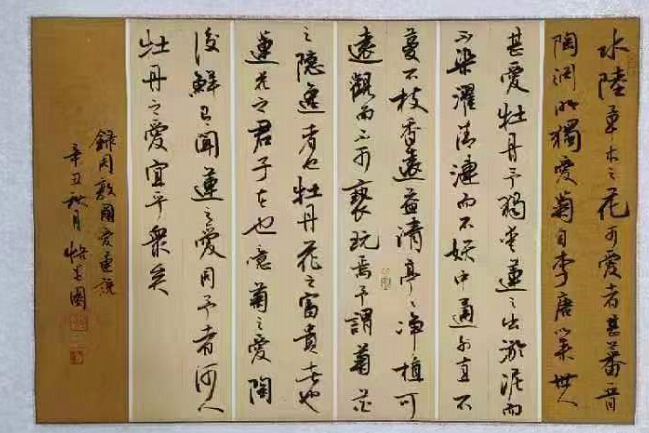 水陸草木之花可愛者甚蕃晉
陶渊明獨愛菊自李唐以来世人
甚愛牡丹予獨愛蓮之出淤泥而
不染濯清漣而不妖中通外直不
蔓不枝香遠益清亭〻净植可
遠觀而不可褻玩焉予謂菊花
之隱逸者也牡丹花之富貴者也
蓮花之君子者也噫菊之愛陶
後鮮有聞蓮之愛同予者何人
牡丹之愛宜乎衆矣
録周敦頤愛蓮説
辛丑秋月